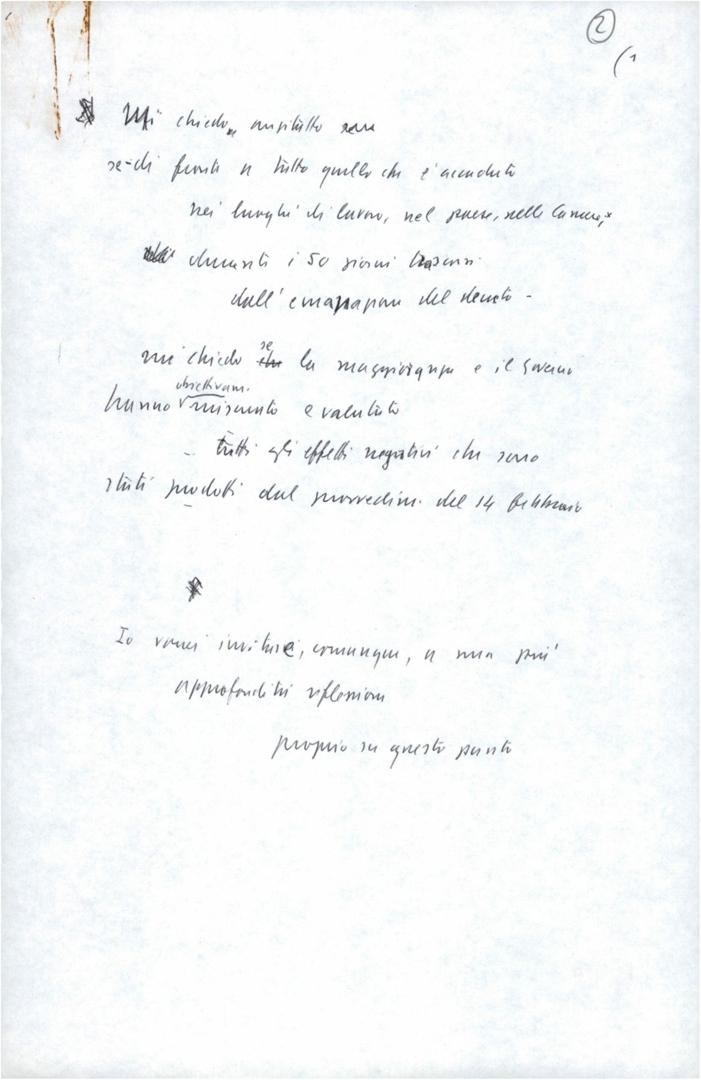 2
(1
Mi chiedo, anzitutto
se di fronte a tutto quello che è accaduto
nei luoghi di lavoro, nel paese, nelle Camere,
durante i 50 giorni trascorsi
dall'emanazione del decreto -
mi chiedo se la maggioranza e il Governo
obiettivam.
hanno misurato e valutato
- tutti gli effetti negativi che sono
stati prodotti dal provvedim. del 14 febbraio
Io vorrei invitare, comunque, a una più
approfondita riflessione
proprio su questo punto